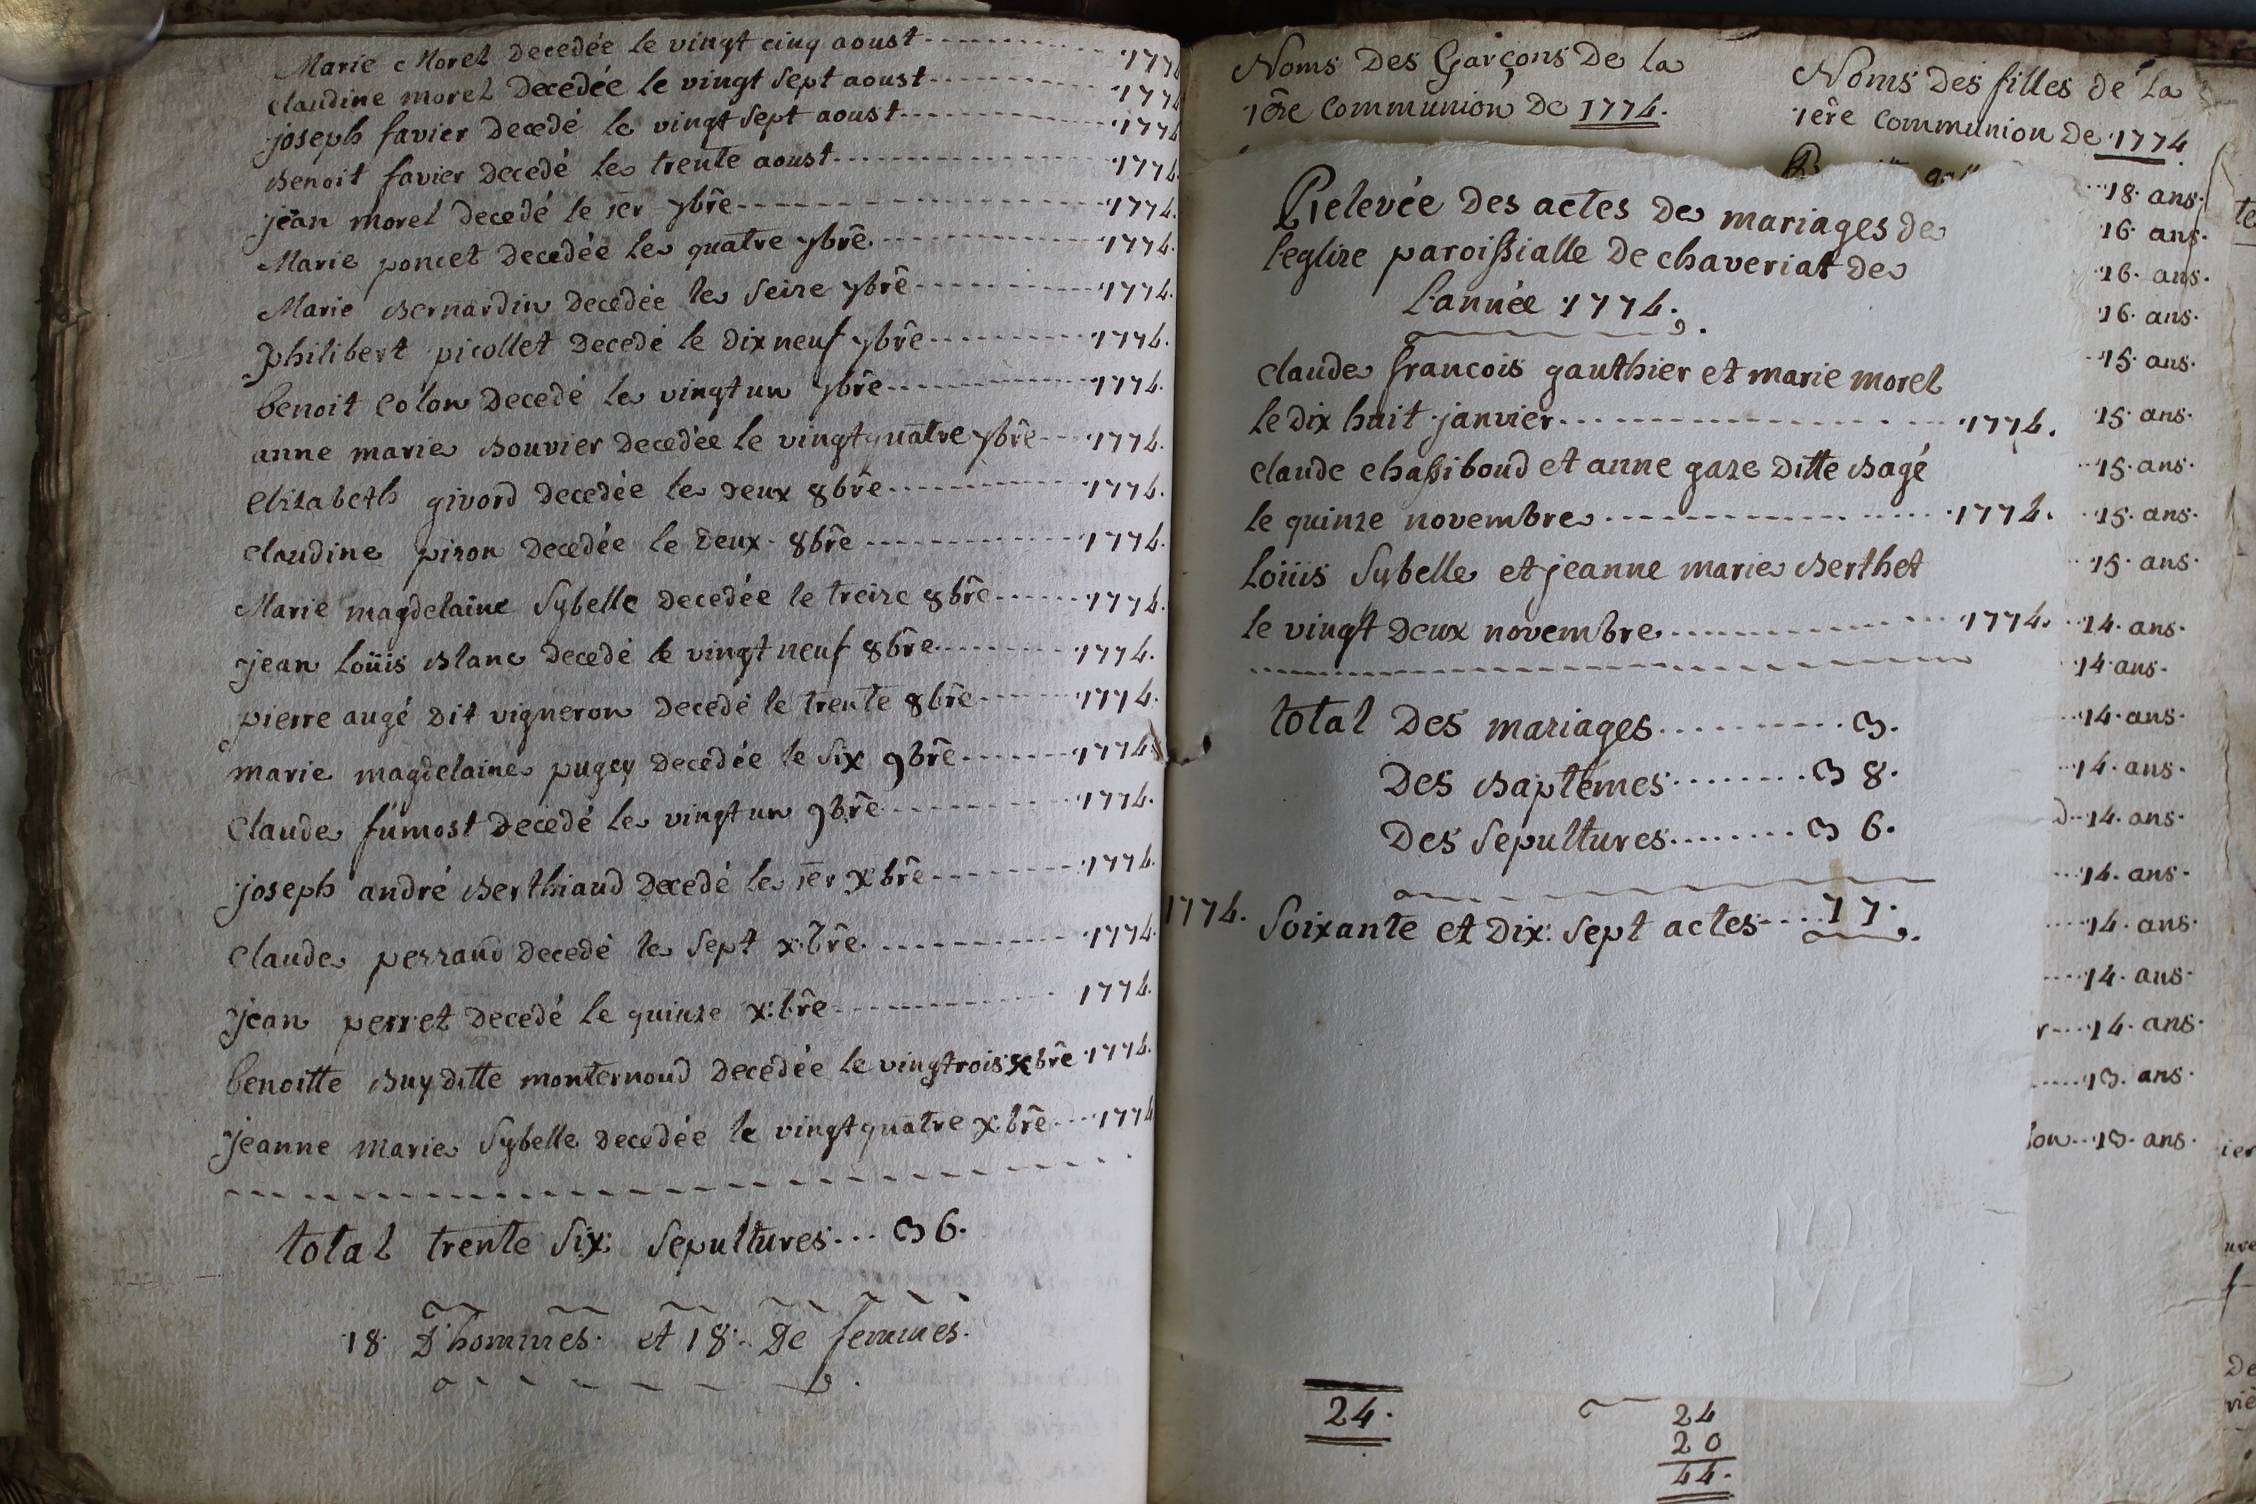 Marie Morel decedée le vingt cinq aoust 1774
claudine morel decedée le vingt sept aoust 1774
joseph favier decedé le vingt sept aoust 1774
Benoit favier decedé le trente aoust 1774.
jean morel decedé le 1er 7bre 1774.
Marie poncet decedée le quatre 7bre 1774.
Marie Bernardin decedée le seize 7bre 1774.
philibert picollet decedé le dix neuf 7bre 1774.
benoit colon decedé le vingt un 7bre 1774.
anne marie Bouvier decedée le vingt quatre 7bre 1774.
elizabeth givord decedée le deux 8bre 1774.
claudine pizon decedée le deux 8bre 1774.
Marie magdelaine Sybelle decedée le treize 8bre 1774.
jean Loüis Blanc decedé le vingt neuf 8bre 1774.
pierre augé dit vigneron decedé le trente 8bre 1774.
marie magdelaine pugey decedée le six 9bre 1774.
Claude fumost decedé le vingt un 9bre 1774.
joseph andré Berthiaud decedé le 1er Xbre 1774.
Claude perraud decedé le sept x:bre 1774.
jean perret decedé le quinze x:bre 1774.
benoitte Buy ditte monternoud decedée le vingtrois xbre 1774.
jeanne marie Sybelle decedée le vingt quatre x:bre 1774
total trente six: sepultures 36.
18 D'hommes. et 18. De femmes.
Noms Des Garçons De la
1ère Communion De 1774.
Noms Des filles de la
1ère Communion De 1774.
Relevée Des actes De mariages de
l'eglize paroissialle De chaveriat De
L'année 1774.
claude francois gauthier et marie morel
le dix huit janvier 1774.
claude chassiboud et anne gaze ditte Bagé
le quinze novembre 1774.
Loüis Sybelle et jeanne marie Berthet
le vingt deux novembre 1774.
total Des mariages 3.
Des Baptêmes 38.
Des Sepultures 36.
1774. Soixante et Dix: Sept actes 77.
18 ans.
16 ans.
16 ans.
16 ans.
15 ans.
15 ans.
15 ans.
15 ans.
15 ans.
14 ans.
14 ans.
14 ans.
14 ans.
14 ans.
14 ans.
14 ans.
14 ans.
14 ans.
13 ans.
13 ans.
24.
24
20
44.